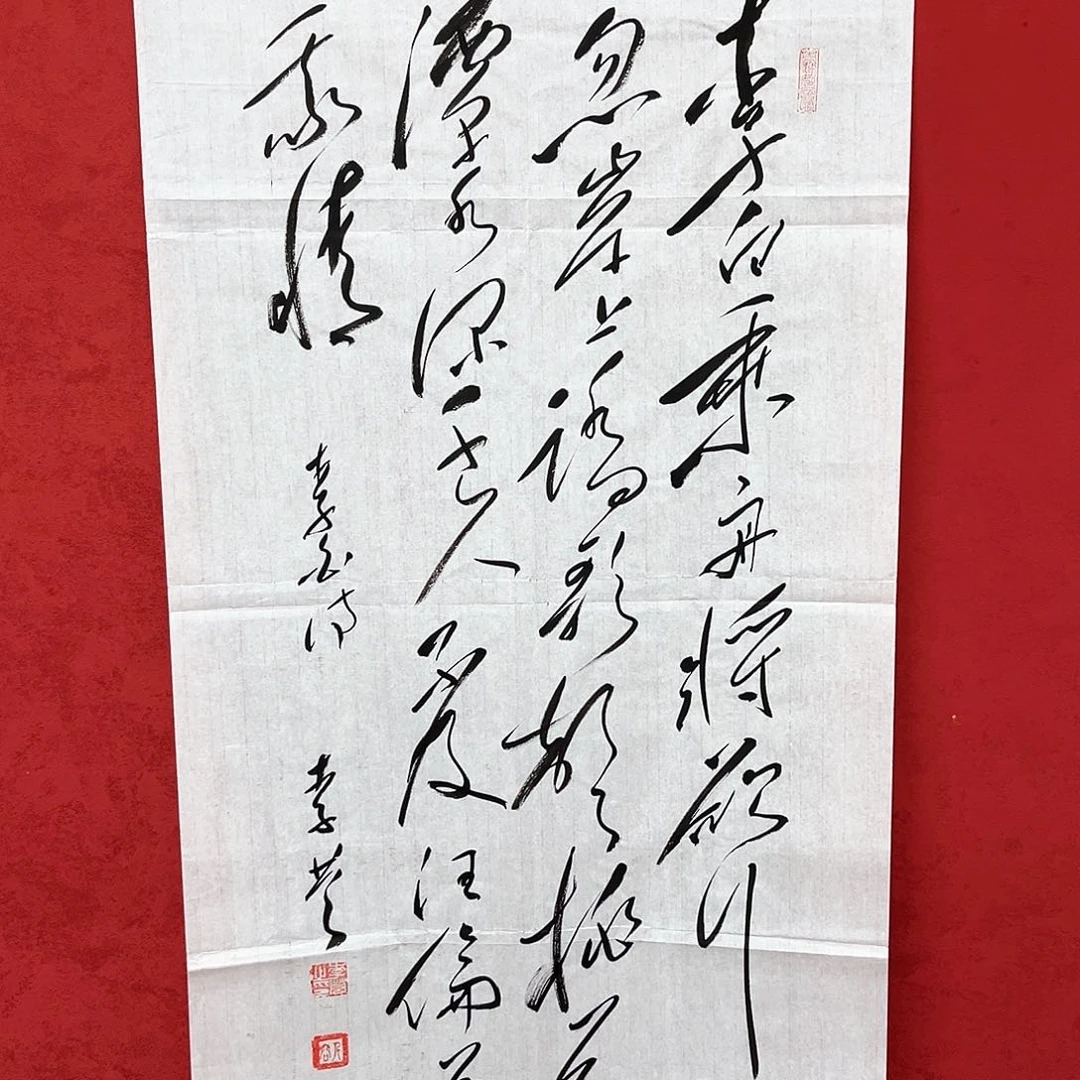 李白乘舟将欲行
忽岸上踏歌聲桃
潭水深千尺不及汪倫
我情
李白诗
李